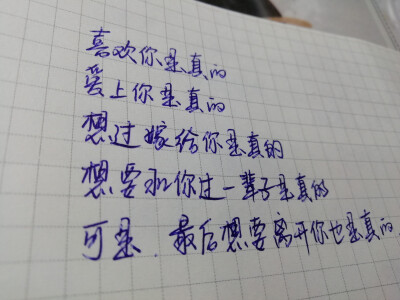 喜欢你是真的
爱上你是真的
想过嫁给你是真的
想要和你过一辈子是真的
可是.最后想要离开你也是真的